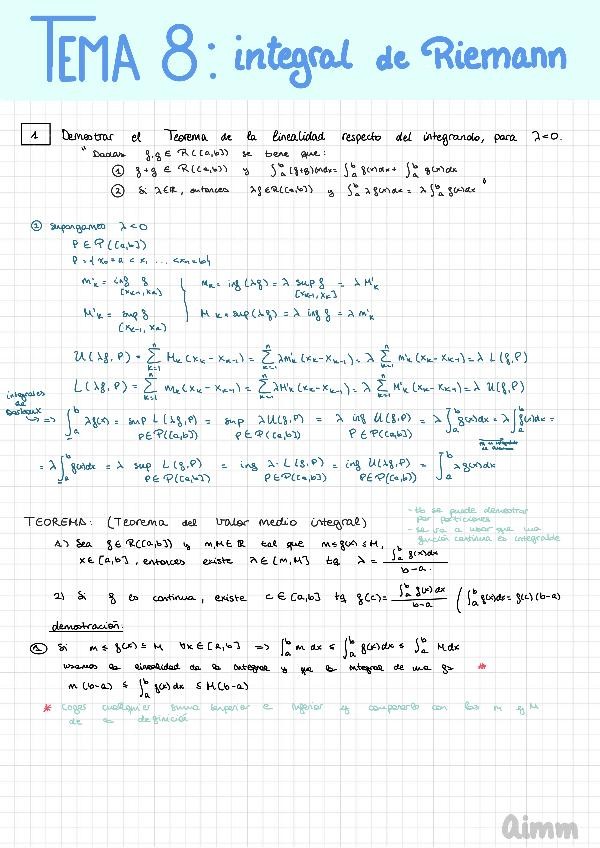 TEMA 8: integral de Riemann
1 Demostrar el Teorema de la linealidad respecto del integrando, para λ<0.
"Dadas f,g ∈ R([a,b]) se tiene que:
① f+g ∈ R([a,b]) y ∫_a^b (f+g)(x)dx = ∫_a^b f(x)dx + ∫_a^b g(x)dx
② Si λ∈R, entonces λf∈R([a,b]) y ∫_a^b λf(x)dx = λ∫_a^b f(x)dx"
② supongamos λ<0
P ∈ P([a,b])
P = { x₀ = a < x₁ ... < xₙ = b }
m'ₖ = inf f [xₖ₋₁, xₖ] mₖ = inf (λf) = λ sup f [xₖ₋₁, xₖ] = λ M'ₖ
M'ₖ = sup f [xₖ₋₁, xₖ] Mₖ = sup (λf) = λ inf f = λ m'ₖ
U(λf,P) = Σ_{k=1}^n Mₖ(xₖ - xₖ₋₁) = Σ_{k=1}^n λm'ₖ(xₖ - xₖ₋₁) = λ Σ_{k=1}^n m'ₖ(xₖ - xₖ₋₁) = λ L(f,P)
L(λf,P) = Σ_{k=1}^n mₖ(xₖ - xₖ₋₁) = Σ_{k=1}^n λM'ₖ(xₖ - xₖ₋₁) = λ Σ_{k=1}^n M'ₖ(xₖ - xₖ₋₁) = λ U(f,P)
integrales de Darboux
=> ∫_a^b λf(x) = sup L(λf,P) P∈P([a,b]) = sup λU(f,P) P∈P([a,b]) = λ inf U(f,P) P∈P([a,b]) = λ∫_a^b f(x)dx = λ∫_a^b f(x)dx =
= λ∫_a^b f(x)dx = λ sup L(f,P) P∈P([a,b]) = inf λ·L(f,P) P∈P([a,b]) = inf U(λf,P) P∈P([a,b]) = ∫_a^b λf(x)dx
TEOREMA: (Teorema del valor medio integral)
- tb se puede demostrar por particiones
- se va a usar que una función continua es integrable
1) Sea f∈R([a,b]) y m,M∈R tal que m≤f(x)≤M,
x∈[a,b], entonces existe λ∈[m,M] tq λ = ∫_a^b f(x)dx / b-a.
2) Si f es continua, existe c∈[a,b] tq f(c) = ∫_a^b f(x)dx / b-a (∫_a^b f(x)dx = f(c)(b-a)
demostración:
① Si m ≤ f(x) ≤ M ∀x∈[a,b] => ∫_a^b m dx ≤ ∫_a^b f(x)dx ≤ ∫_a^b Mdx
usamos la linealidad de la integral y que la integral de una *
m(b-a) ≤ ∫_a^b f(x)dx ≤ M(b-a)
* Coges cualquier suma superior e inferior y compararlo con las m y M
de la definición
aimm